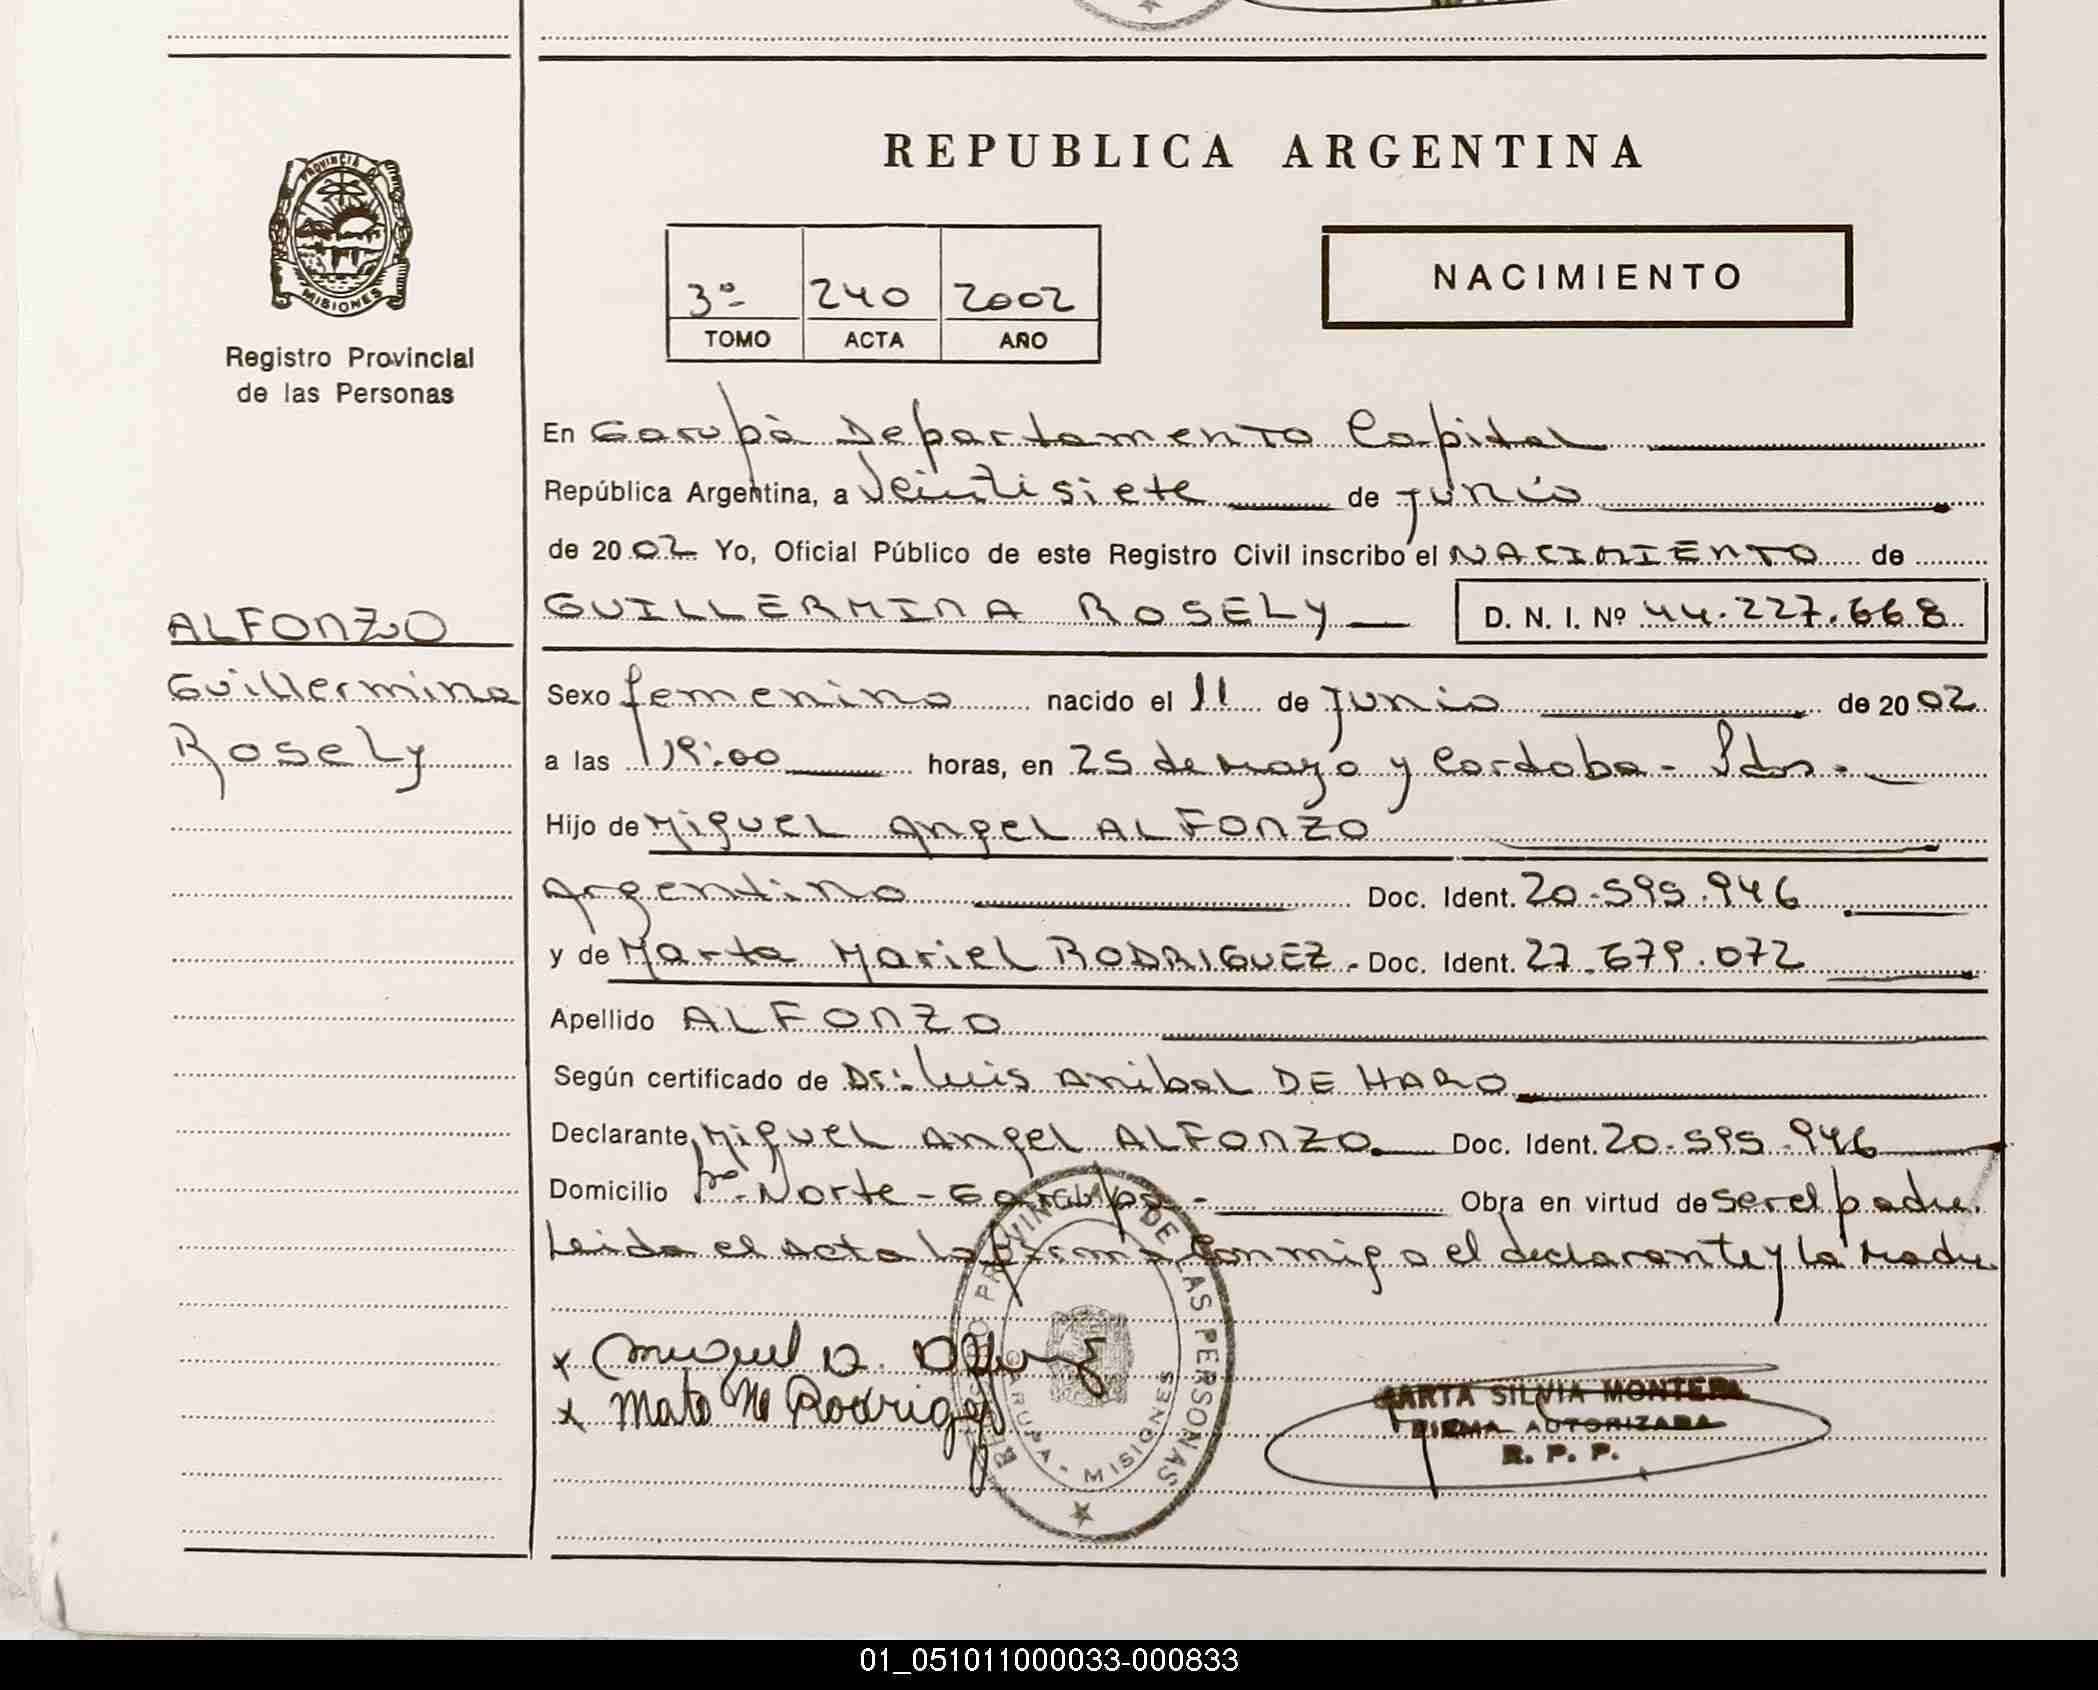 REPUBLICA ARGENTINA
PROVINCIA DE
MISIONES
Registro Provincial
de las Personas
3º 240 2002
TOMO ACTA AÑO
NACIMIENTO
En Garupà Departamento Capital
República Argentina, a Veintisiete de junio
de 2002 Yo, Oficial Público de este Registro Civil inscribo el NACIMIENTO de
ALFONZO
Guillermina
Rosely
GUILLERMINA ROSELY D. N. I. Nº 44.227.668
Sexo femenino nacido el 11 de junio de 2002
a las 19:00 horas, en 25 de mayo y Cordoba - Pdas.
Hijo de Miguel Angel ALFONZO
Argentino Doc. Ident. 20.595.946
y de Marta Mariel RODRIGUEZ. Doc. Ident. 27.679.072
Apellido ALFONZO
Según certificado de Dr: Luis Anibal DE HARO
Declarante Miguel Angel ALFONZO. Doc. Ident. 20.595.946
Domicilio Bº Norte - Garupa - Obra en virtud de ser el padre.
Leida el acta la firma conmigo el declarante y la madre
x Miguel A.
x Rodrigez
REGISTRO PROVINCIAL DE LAS PERSONAS
GARUPA - MISIONES
MARTA SILVIA MONTERO
FIRMA AUTORIZADA
R. P. P.
01_051011000033-000833